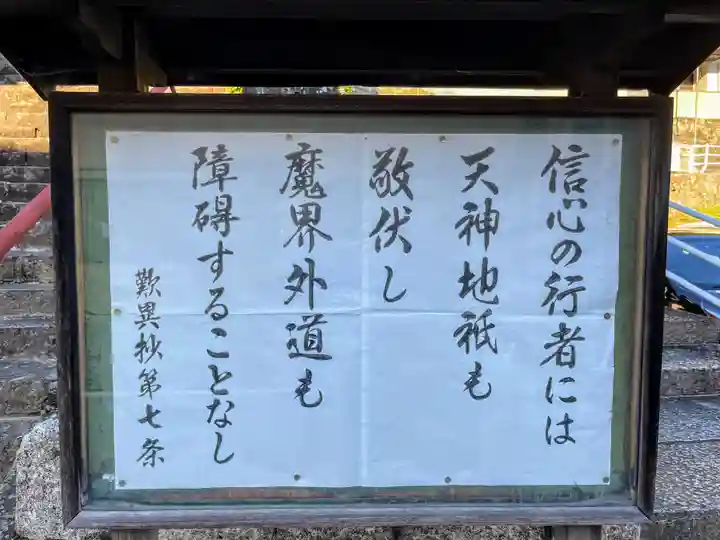 信心の行者には
天神地祇も
敬伏し
魔界外道も
障碍することなし
歎異抄第七条